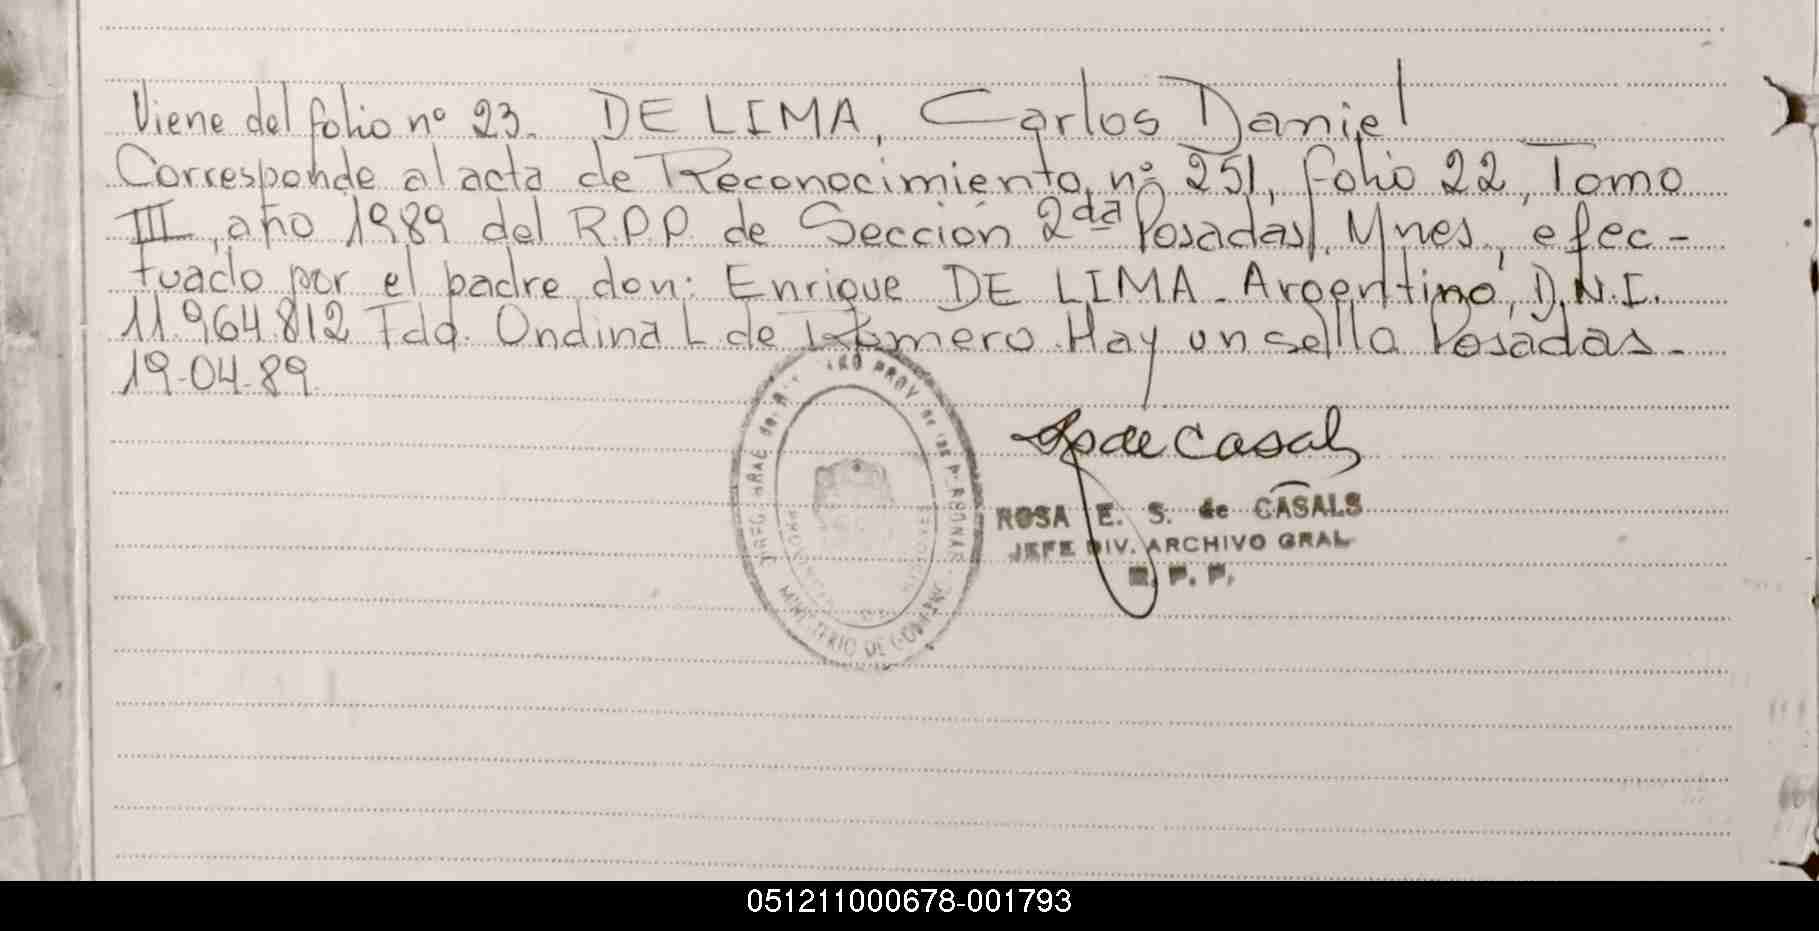 Viene del folio nº 23. DE LIMA, Carlos Daniel
Corresponde al acta de Reconocimiento, nº 251, folio 22, Tomo
III, año 1989 del R.P.P. de Sección 2da Posadas, Mnes, efec-
tuado por el padre don: Enrique DE LIMA - Argentino, D.N.I.
11.964.812 Fdo. Ondina L de Romero. Hay un sello Posadas.-
19-04-89.
de Casals
ROSA E. S. de CASALS
JEFE DIV. ARCHIVO GRAL
R. P. P.
PROV. de las PERSONAS
MINISTERIO DE GOBIERNO
051211000678-001793